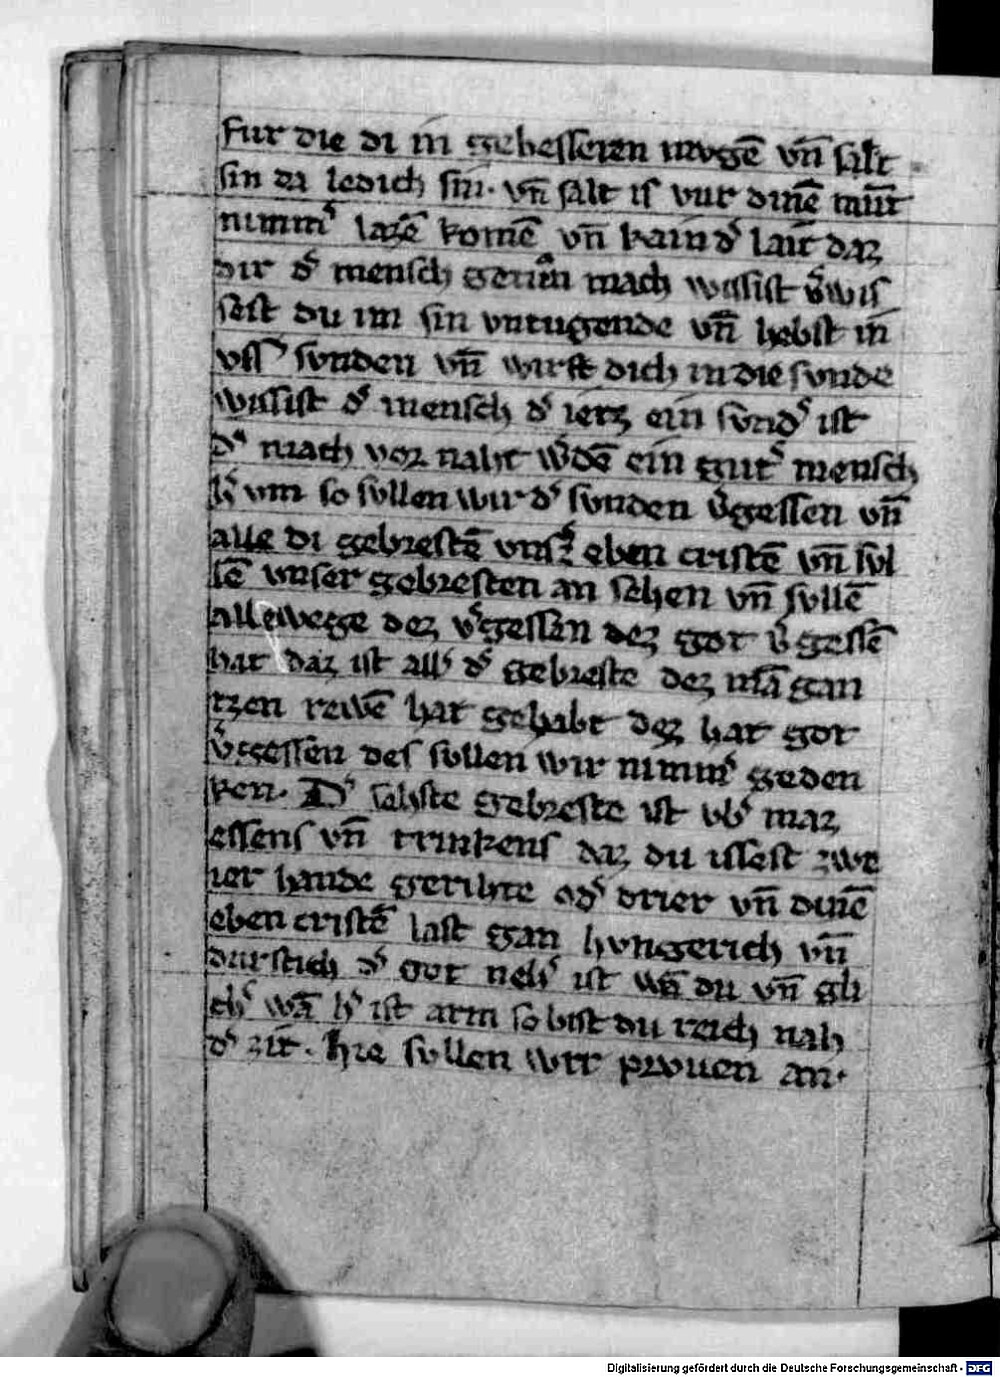 fur die di in gebesseren mvgē vn̄ salt
sin da ledich sin. vn̄ salt is vur dinē mūt
nimm͛ lazē komē vn̄ kain d͛ lait daz
dir d͛ mensch getūn mach wissist v͛wis
sest du im sin vntugende vn̄ hebst in
vss͛ sunden vn̄ wirst dich in die sunde
wissist d͛ mensch d͛ ietz ein sund͛ ist
d͛ mach vor naht w͛dē ein gut͛ mensch
h͛ vm so sullen wir d͛ sunden v͛gessen vn̄
alle di gebrestē vns͛ eben cristē vn̄ sul
lē vnser gebresten an sehen vn̄ sullē
allewege dez v͛gessen dez got v͛gessē
hat daz ist all͛ d͛ gebreste dez mā gan
tzen rewē hat gehabt dez hat got
v͛gessen des sullen wir nimm͛ geden
ken. D͛ sehste gebreste ist vb͛ maz
essens vn̄ trinkens daz du issest zwe
ier hande gerihte od͛ drier vn̄ dinē
eben cristē last gan hvngerich vn̄
durstich d͛ got neh͛ ist wā du vn̄ gli
ch͛ wā h͛ ist arm so bist du reich nah
d͛ zit. hie sullen wir prvuen an.
Digitalisierung gefördert durch die Deutsche Forschungsgemeinschaft - DFG